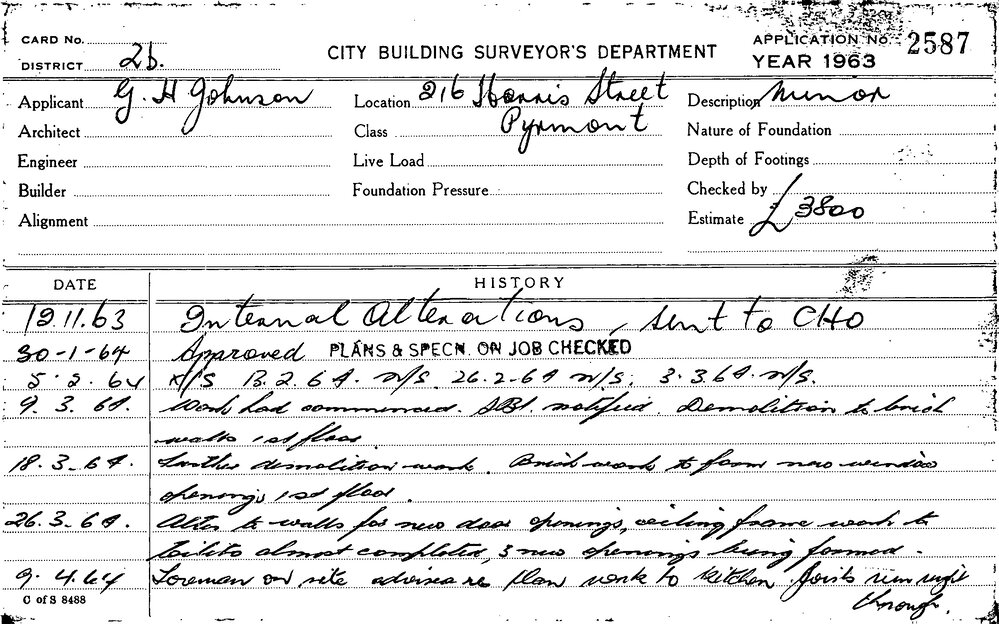 CARD No.
DISTRICT 2b.
CITY BUILDING SURVEYOR'S DEPARTMENT
APPLICATION No. 2587
YEAR 1963
Applicant G. H Johnson
Location 216 Harris Street
Pyrmont
Description Minor
Architect
Class
Nature of Foundation
Engineer
Live Load
Depth of Footings
Builder
Foundation Pressure
Checked by
Alignment
Estimate £3800
DATE HISTORY
12.11.63 Internal Alterations, sent to CHO
30-1-64 Approved PLANS & SPECN. ON JOB CHECKED
5.2.64 N/S 13.2.64. N/S. 26.2-64 N/S. 3.3.64. N/S.
9.3.64. Work had commenced. notified. Demolition to brick
walls 1st floor.
18.3-64. Further demolition work. Brick work to form new window
openings 1st floor.
26.3-64. Alter to walls for new door openings, ceiling frame work to
toilets almost completed, 3 new openings being formed.
9.4.64 Foreman on site advised re plan work to kitchen. Joists run right
through.
C of S 8488